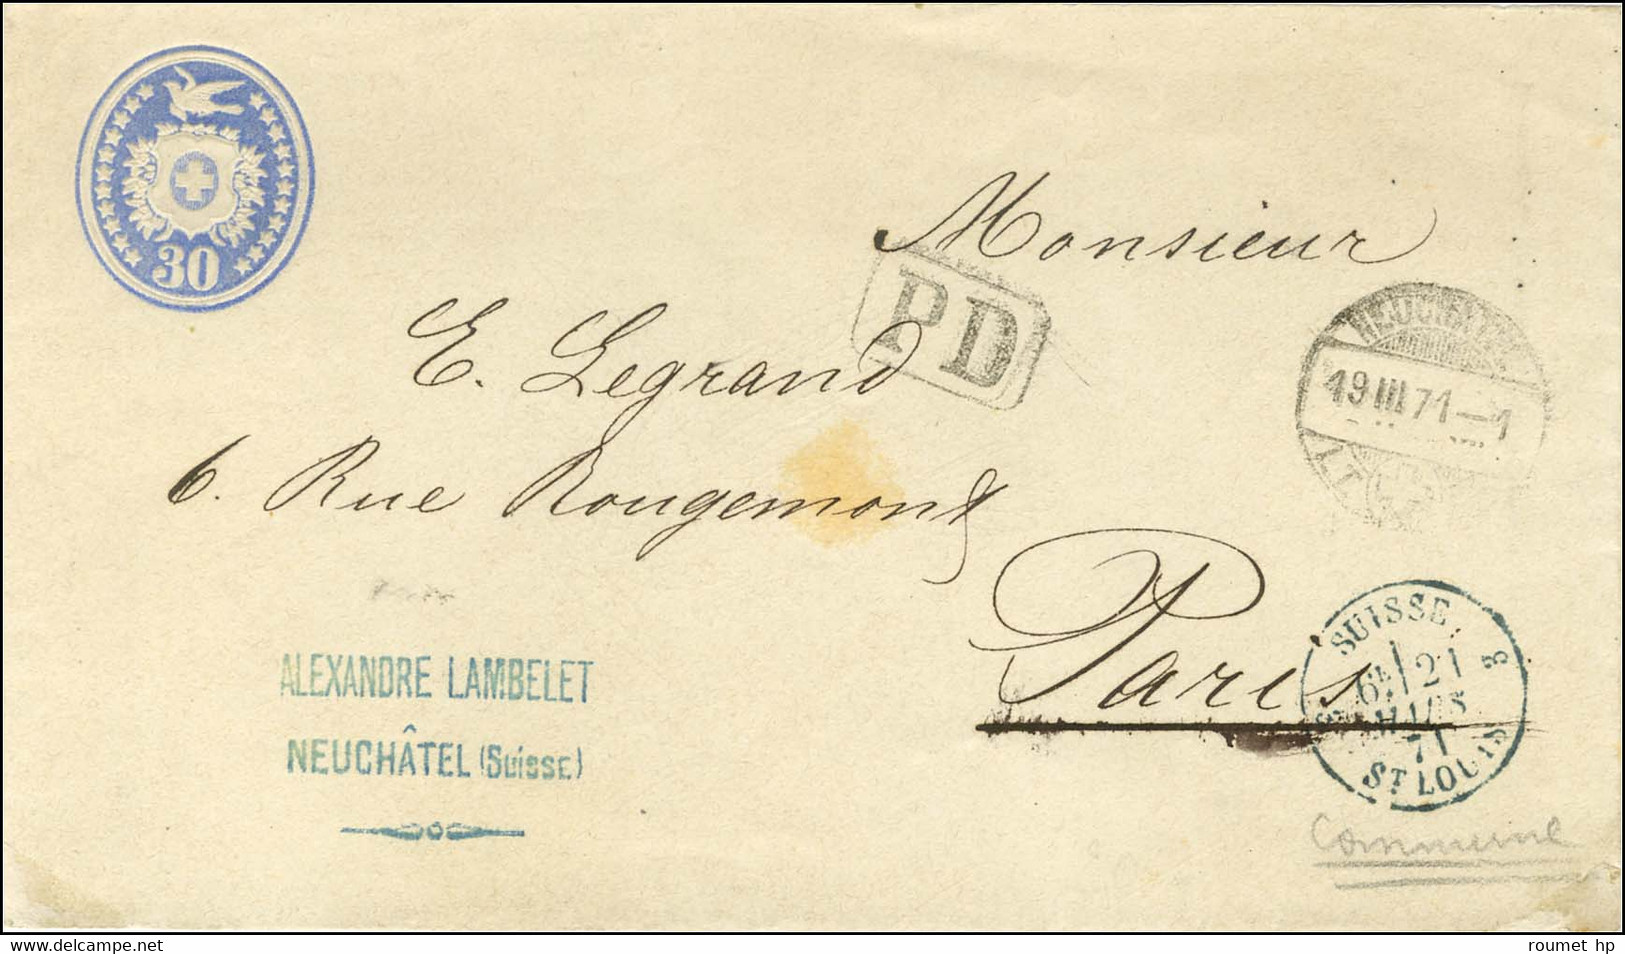 30
Monsieur
PD
E. Legrand
NEUCHATEL
19 III 71–1
6. Rue Rougemont
Paris
SUISSE
3
6E 21
MARS
71
ST LOUIS
ALEXANDRE LAMBELET
NEUCHÂTEL (Suisse)
Commune
roumet hp